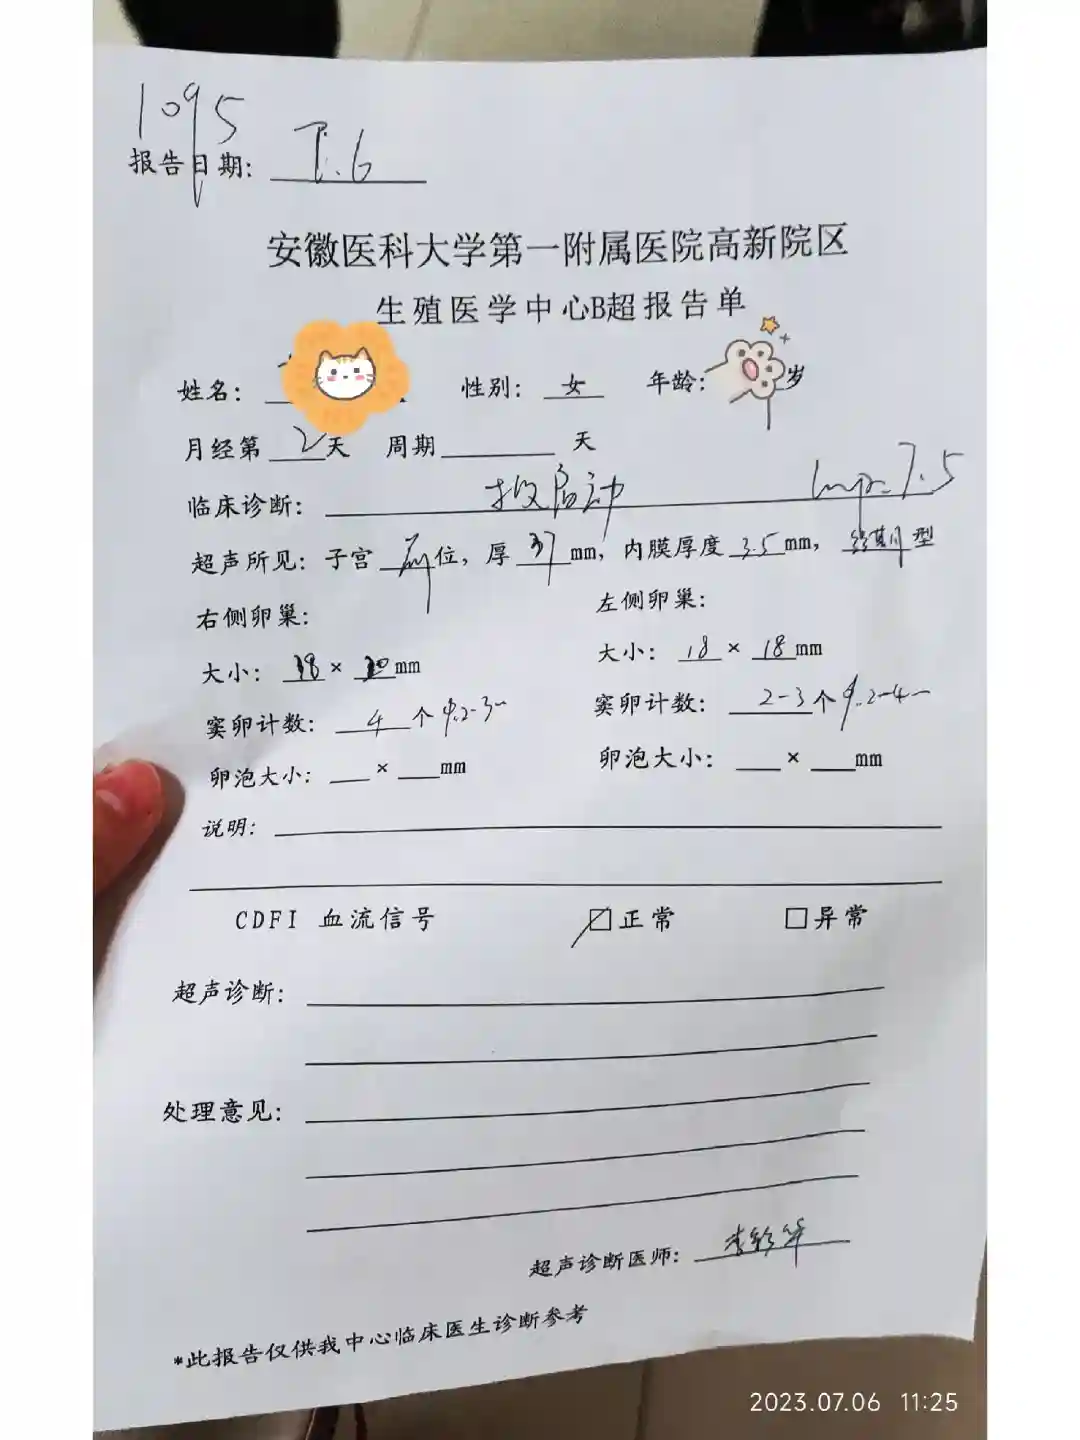 1095
报告日期: 7.6
安徽医科大学第一附属医院高新院区
生殖医学中心B超报告单
姓名: 性别: 女 年龄: 岁
月经第 2 天 周期 天
临床诊断: 拟启动 lmp: 7.5
超声所见: 子宫 前 位, 厚 37 mm, 内膜厚度 3.5 mm, 经期 型
右侧卵巢: 左侧卵巢:
大小: × mm 大小: 18 × 18 mm
窦卵计数: 4 个 φ.2-3 窦卵计数: 2-3 个 φ.2-4
卵泡大小: × mm 卵泡大小: × mm
说明:
CDFI 血流信号 正常 异常
超声诊断:
处理意见:
超声诊断医师:
*此报告仅供我中心临床医生诊断参考
2023.07.06 11:25